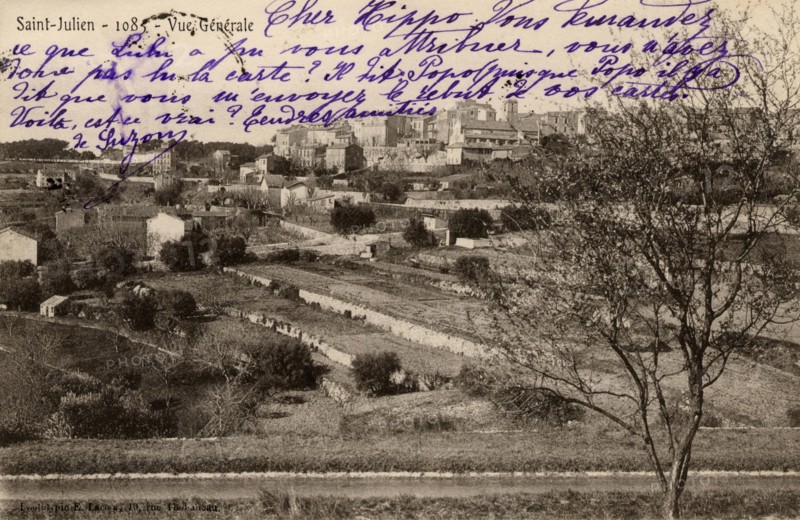 Saint-Julien - 1085 - Vue Générale
Cher Hippo Vous demandez
ce que Lulu a pu vous attribuer, vous n'avez
donc pas lu la carte? Il dit Popo puisque Popo il y a
dit que vous m'envoyez le début de vos cartes.
Voilà, est-ce vrai? Tendres amitiés
de Suzon
Lacour, 10, rue Thubaneau.